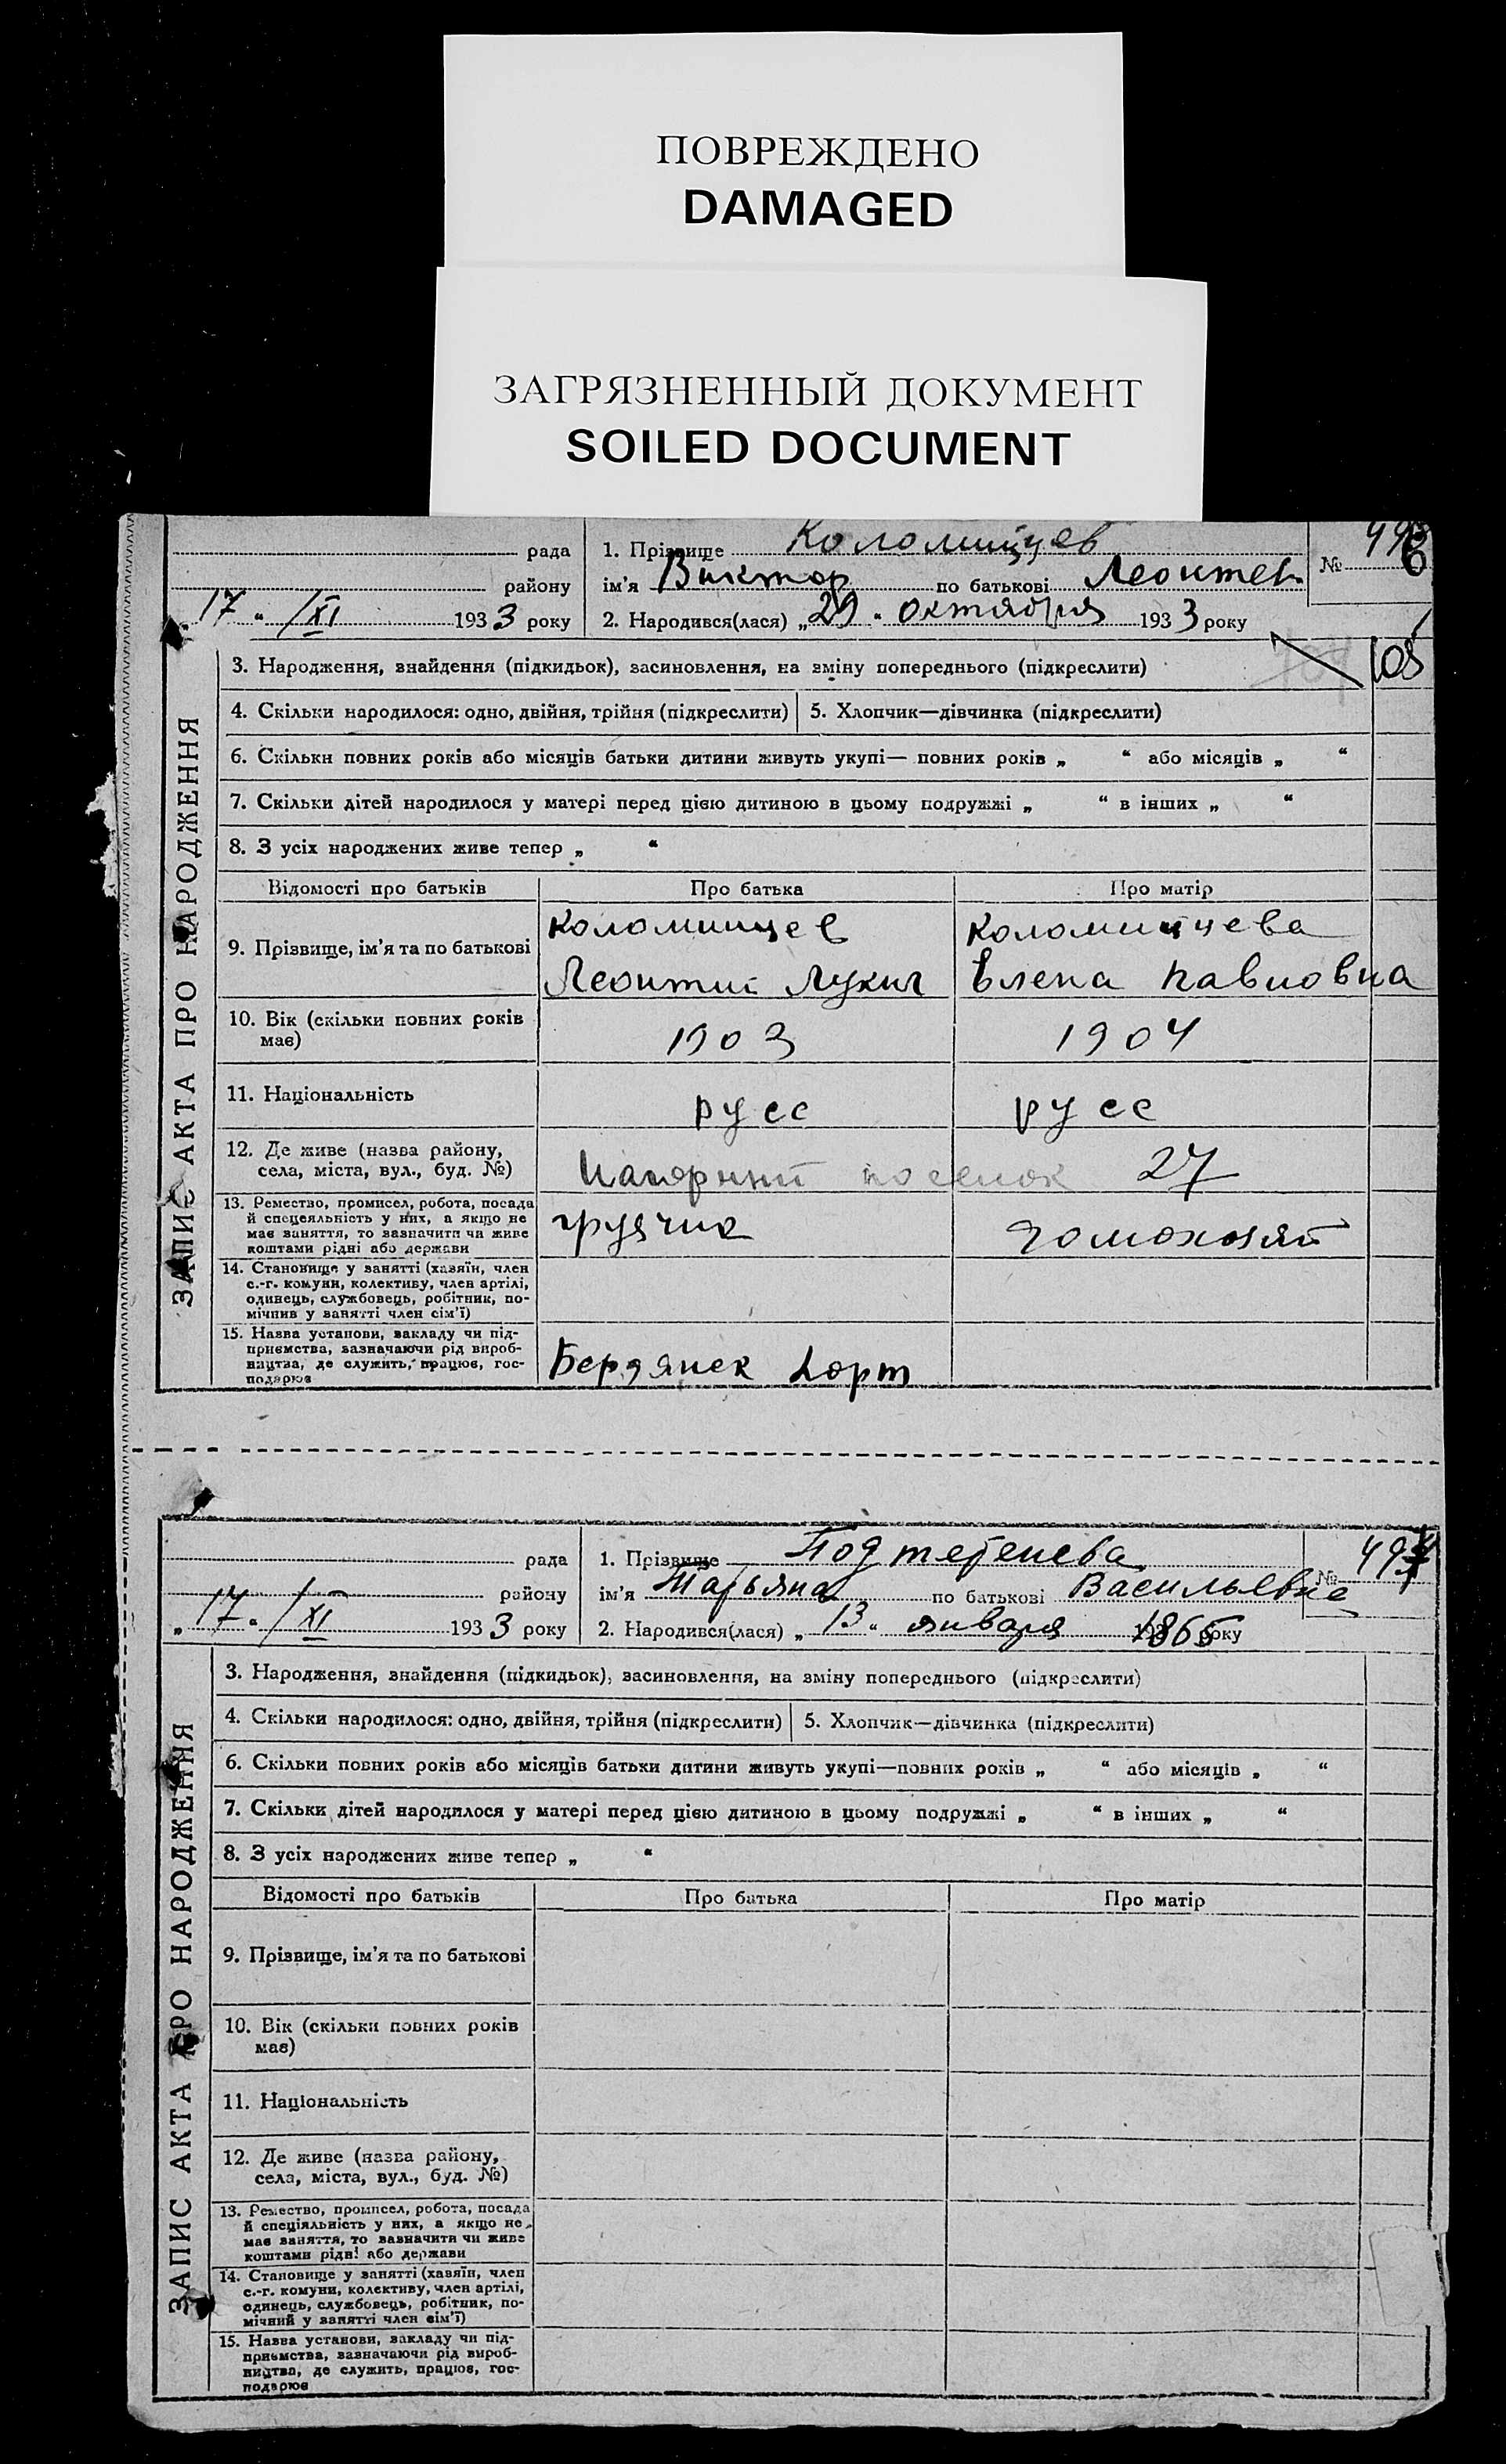 ПОВРЕЖДЕНО
DAMAGED
ЗАГРЯЗНЕННЫЙ ДОКУМЕНТ
SOILED DOCUMENT
рада
1. Прізвище Коломицев
№
району
ім'я Виктор по батькові Леонтев
17 " /XI 1933 року
2. Народився(лася) „29 " октября 1933 року
105
3. Народження, знайдення (підкидьок), засиновлення, на зміну попереднього (підкреслити)
4. Скільки народилося: одно, двійня, трійня (підкреслити)
5. Хлопчик—дівчинка (підкреслити)
6. Скільки повних років або місяців батьки дитини живуть укупі— повних років „ “ або місяців „ “
7. Скільки дітей народилося у матері перед цією дитиною в цьому подружжі „ “ в інших „ “
8. З усіх народжених живе тепер „ “
Відомості про батьків
Про батька
Про матір
9. Прізвище, ім'я та по батькові
Коломицев
Леонтий Лукич
Коломицева
Елена Павловна
10. Вік (скільки повних років
має)
1903
1904
11. Національність
русс
русс
12. Де живе (назва району,
села, міста, вул., буд. №)
Нагорный поселок 27
13. Ремество, промисел, робота, посада
й спеціяльність у них, а якщо не
має заняття, то зазначити чи живе
коштами рідні або держави
грузчик
домохозяй
14. Становище у занятті (хазяїн, член
с.-г. комуни, колективу, член артілі,
одинець, службовець, робітник, по-
мічник у занятті член сім'ї)
15. Назва установи, закладу чи під-
приємства, зазначаючи рід вироб-
ництва, де служить, працює, гос-
подарює
Бердянск порт
ЗАПИС АКТА ПРО НАРОДЖЕННЯ
рада
1. Прізвище
№
району
ім'я Татьяна по батькові Васильевне
„ 17 " /XI 1933 року
2. Народився(лася) „ 13 " января 1865 року
3. Народження, знайдення (підкидьок), засиновлення, на зміну попереднього (підкреслити)
4. Скільки народилося: одно, двійня, трійня (підкреслити)
5. Хлопчик—дівчинка (підкреслити)
6. Скільки повних років або місяців батьки дитини живуть укупі—повних років „ “ або місяців „ “
7. Скільки дітей народилося у матері перед цією дитиною в цьому подружжі „ “ в інших „ “
8. З усіх народжених живе тепер „ “
Відомості про батьків
Про батька
Про матір
9. Прізвище, ім'я та по батькові
10. Вік (скільки повних років
має)
11. Національність
12. Де живе (назва району,
села, міста, вул., буд. №)
13. Ремество, промисел, робота, посада
й спеціяльність у них, а якщо не
має заняття, то зазначити чи живе
коштами рідні або держави
14. Становище у занятті (хазяїн, член
с.-г. комуни, колективу, член артілі,
одинець, службовець, робітник, по-
мічний у занятті член сім'ї)
15. Назва установи, закладу чи під-
приємства, зазначаючи рід вироб-
ництва, де служить, працює, гос-
подарює
ЗАПИС АКТА ПРО НАРОДЖЕННЯ